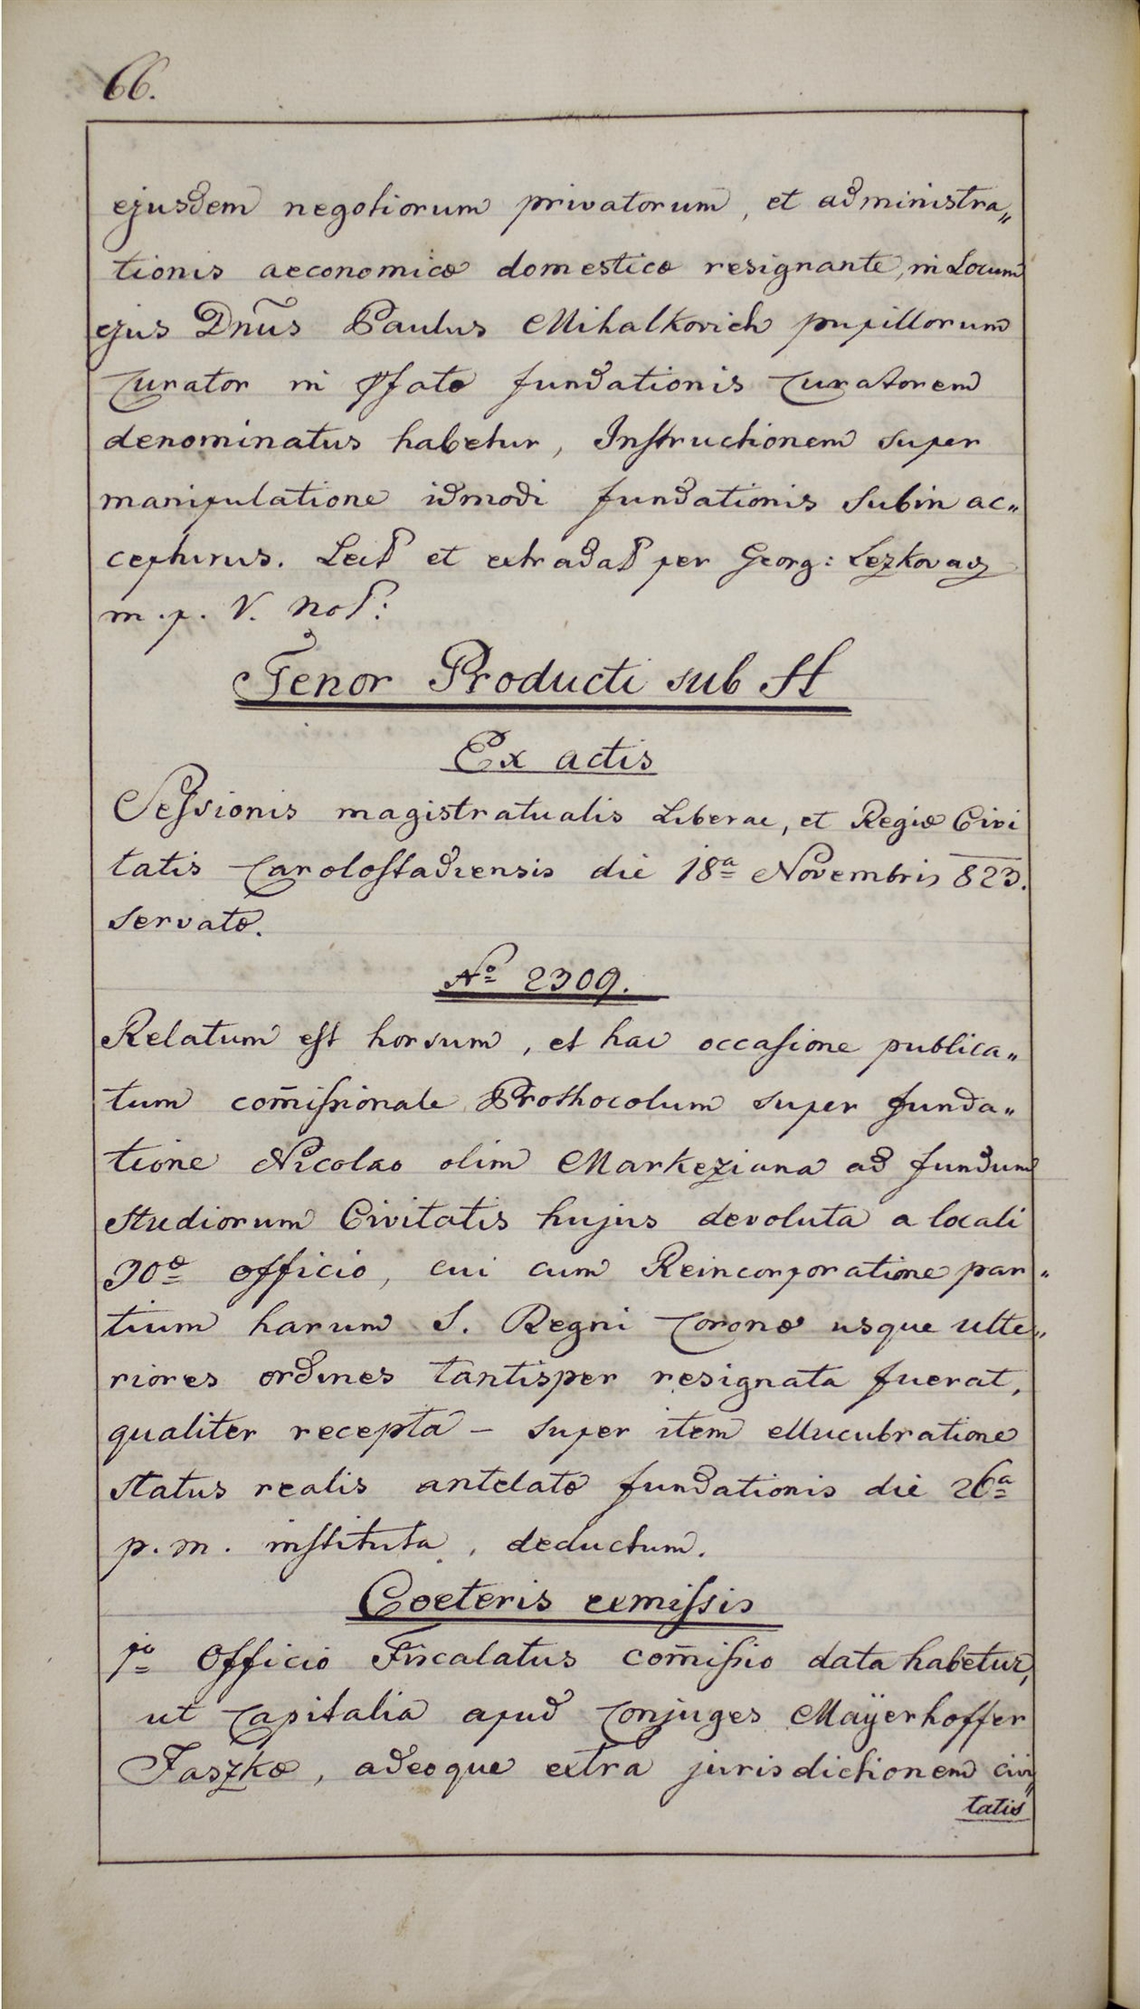 66.
ejusdem negotiorum privatorum, et administra„
tionis aeconomicæ domesticæ resignante, in Locum
ejus Dnūs Paulus Mihalkovich pupillorum
Curator in pfatæ fundationis Curatorem
denominatus habetur, Instructionem super
manipulatione idmodi fundationis subin ac„
cepturus. Lect et extradat per Georg: Lezkovacz
m.p. V. Not:
Tenor Producti sub H
Ex actis
Sessionis magistratualis Liberae, et Regiæ Civi
tatis Carolostadiensis die 18ª Novembris 823.
servatæ.
Nº 2309.
Relatum est horsum, et hac occasione publica„
tum com̄issionale Prothocolum super funda„
tione Nicolao olim Markeziana ad fundum
studiorum Civitatis hujus devoluta a locali
30º officio, cui cum Reincorporatione par„
tium harum S. Regni Coronæ usque ulte„
riores ordines tantisper resignata fuerat,
qualiter recepta – super item ellucubratione
status realis antelatæ fundationis die 26ª
p.m. instituta, deductum.
Coeteris exmissis
1º Officio Fiscalatus com̄issio data habetur,
ut Capitalia apud Conjuges Maÿerhoffer
Faszkæ, adeoque extra jurisdictionem civi„
tatis